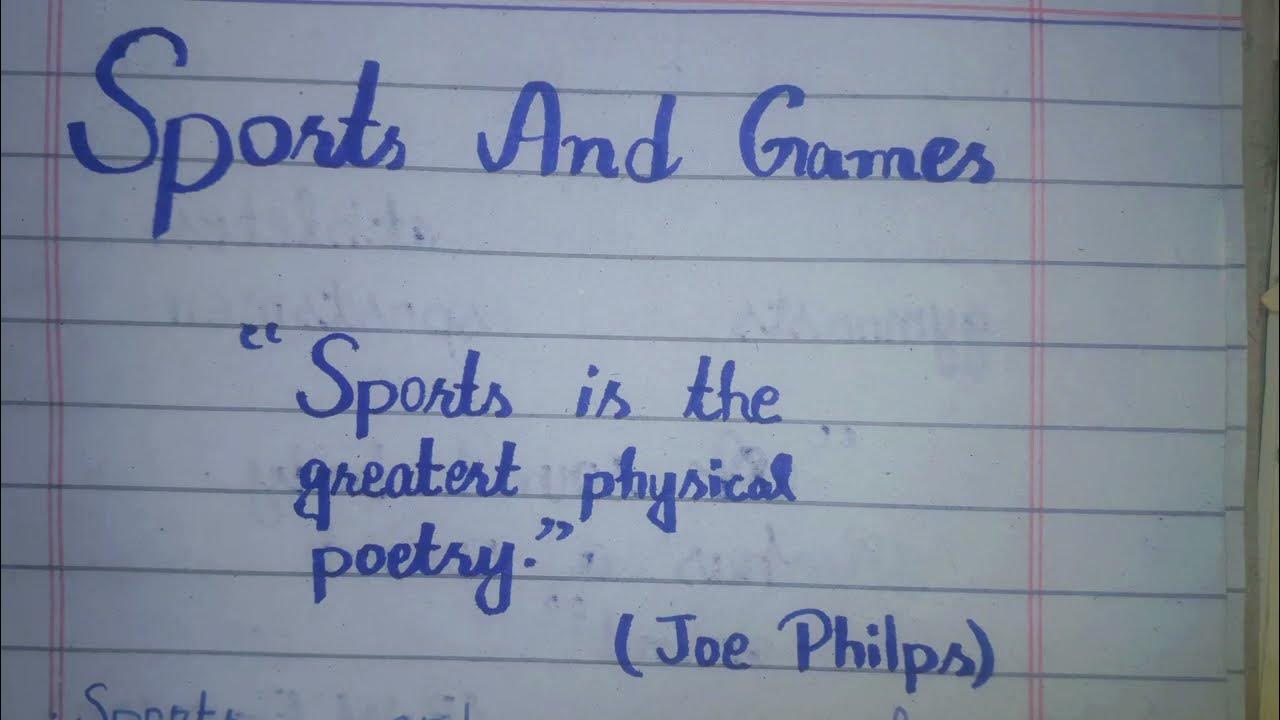 Sports And Games
“Sports is the
greatest physical
poetry.”
(Joe Philps)
Sports